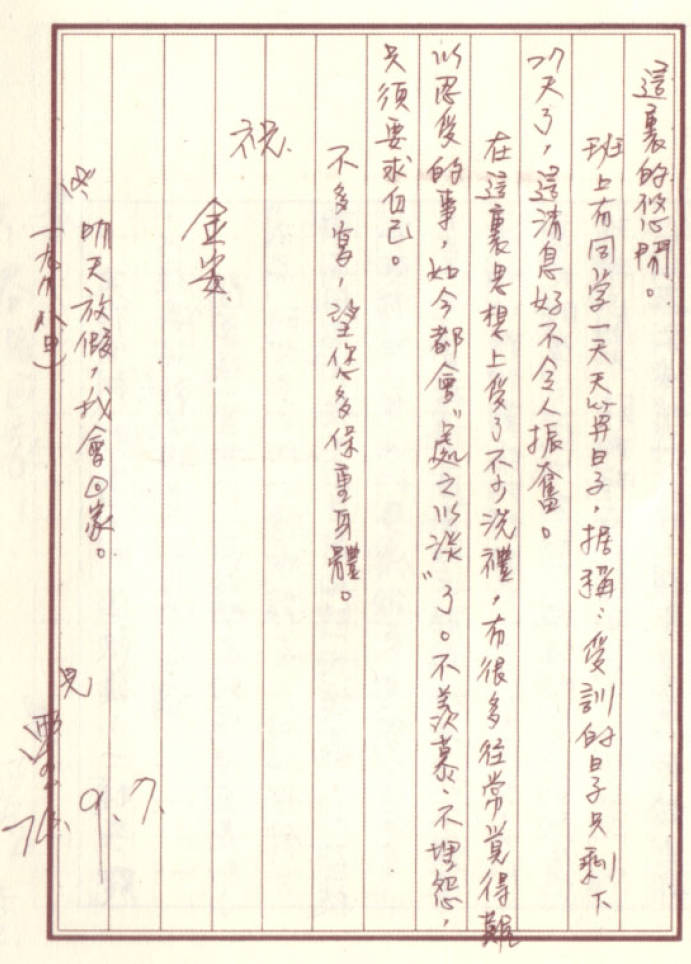 這裏的悠閒。
班上有同学一天天算日子，据稱：受訓的日子只剩下
77天了，這消息好不令人振奮。
在這裏思想上受了不少洗禮，有很多往常覚得難
以忍受的事，如今都會"處之以淡"了。不羨慕、不埋怨，
只須要求自己。
不多寫，望您多保重身體。
祝
金安
明天放假，我會回家。
（九月八日）
兒
76. 9. 7.